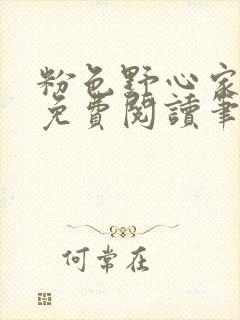 粉色野心家
免費閱讀筆
何常在